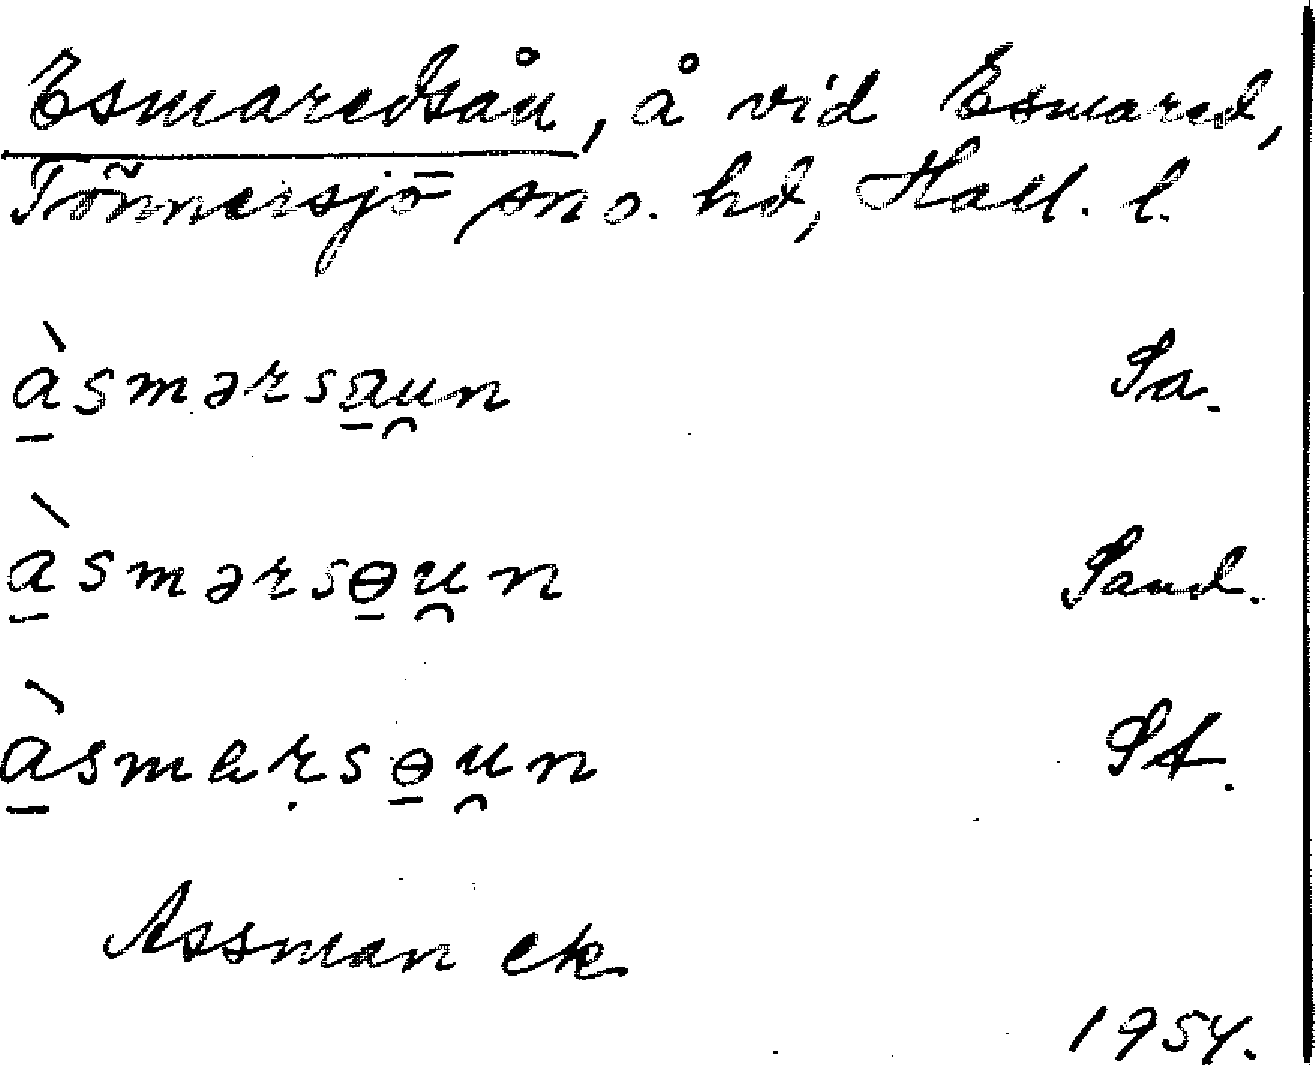 Esmaredsån, å vid Esmared,
Tönnersjö sn o. hd, Hall. l.
à̱smərsa̱u̯n Sa.
à̱smərsɵ̱u̯n Sand.
à̱smaṛsɵ̱u̯n St.
Assman ek.
1954.